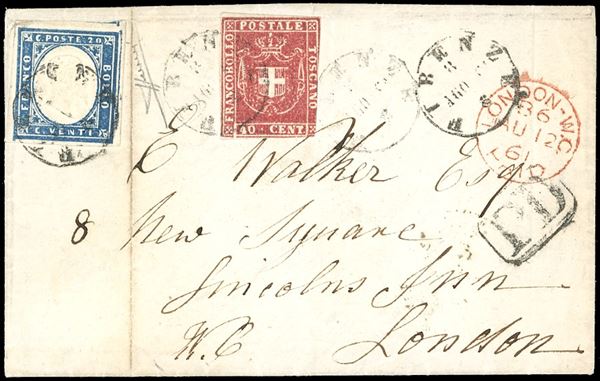 C. POSTE 20
FRANCO
BOLLO
C. VENTI
FRANCOBOLLO
POSTALE
TOSCANO
40 CENT
FIRENZE
FIRENZE
8
AGO
LONDON-W.C
86
AU 12
61
PD
E Walker Esq
8 New Square
Lincolns Inn
W.C London